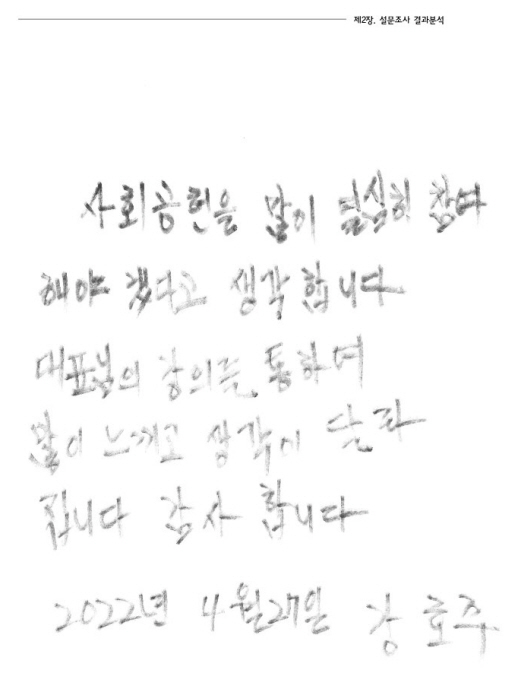 제2장. 설문조사 결과분석
사회공헌을 많이 열심히 참여
해야 겠다고 생각 합니다
대표님의 강의를 통하여
많이 느끼고 생각이 달라
집니다 감사 합니다
2022년 4월27일 강 효주